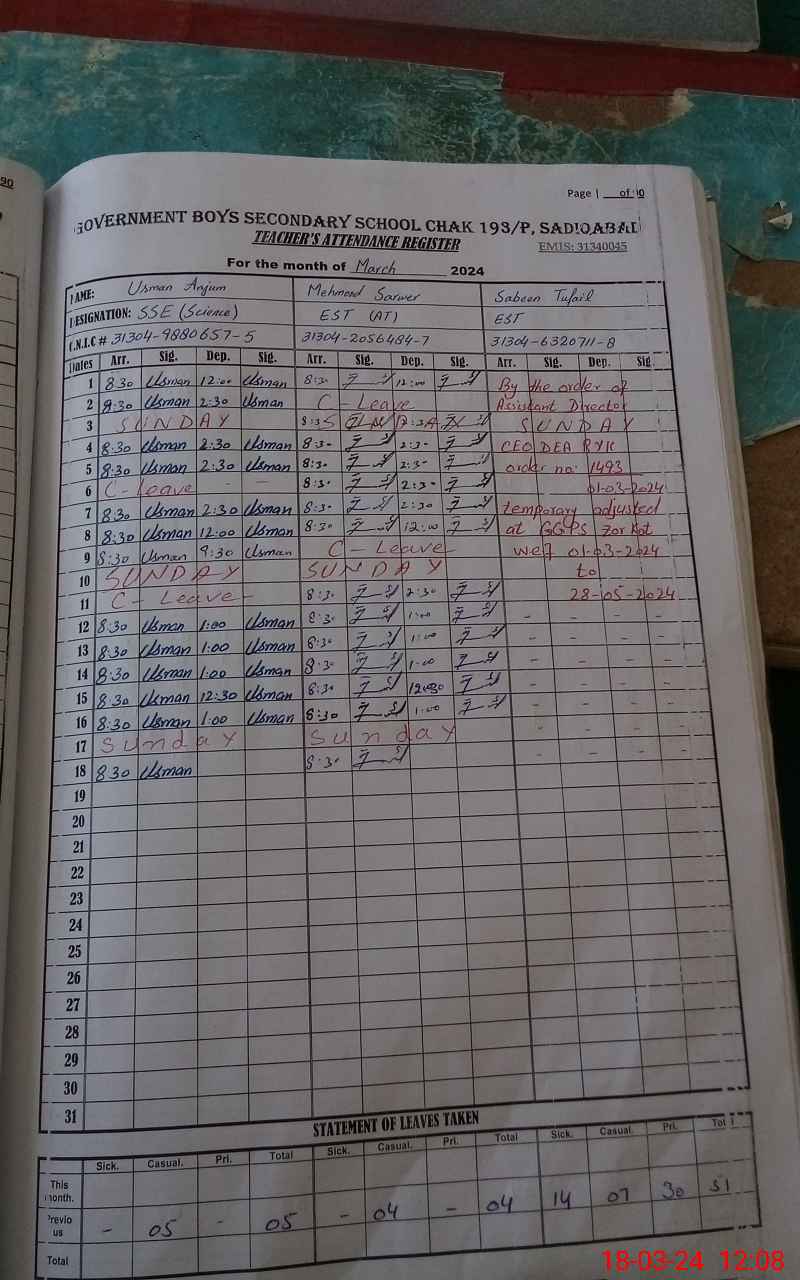 90
Page | of 90
GOVERNMENT BOYS SECONDARY SCHOOL CHAK 193/P, SADIQABAD
TEACHER'S ATTENDANCE REGISTER
EMIS: 31340045
For the month of March 2024
NAME: Usman Anjum Mehmood Sarwer Sabeen Tufail
DESIGNATION: SSE (Science) EST (AT) EST
C.N.I.C # 31304-9880657-5 31304-2056484-7 31304-6320711-8
Dates Arr. Sig. Dep. Sig. Arr. Sig. Dep. Sig. Arr. Sig. Dep. Sig
1 8:30 Usman 12:00 Usman 8:30 12:00 By the order of
2 8:30 Usman 2:30 Usman C-Leave Assistant Director
3 SUNDAY SUNDAY
4 8:30 Usman 2:30 Usman 8:30 2:30 CEO DEA RYK
5 8:30 Usman 2:30 Usman 8:30 2:30 order no: 1493
6 C-Leave - - 8:30 2:30 01-03-2024
7 8:30 Usman 2:30 Usman 8:30 2:30 temporary adjusted
8 8:30 Usman 12:00 Usman 8:30 12:00 at GGPS Zor Kot
9 8:30 Usman 9:30 Usman C-Leave w.e.f 01-03-2024
10 SUNDAY SUNDAY to
11 C-Leave - 8:30 2:30 28-05-2024
12 8:30 Usman 1:00 Usman 8:30 1:00 - - - -
13 8:30 Usman 1:00 Usman 8:30 1:00 - - - -
14 8:30 Usman 1:00 Usman 8:30 1:00 - - - -
15 8:30 Usman 12:30 Usman 8:30 12:30 - - - -
16 8:30 Usman 1:00 Usman 8:30 1:00 - - - -
17 Sunday Sunday - - - -
18 8:30 Usman 8:30 - - - -
19
20
21
22
23
24
25
26
27
28
29
30
31
STATEMENT OF LEAVES TAKEN
Sick. Casual. Pri. Total Sick. Casual. Pri. Total Sick. Casual. Pri. Total
This month.
Previous - 05 - 05 - 04 - 04 14 07 30 51
Total
18-03-24 12:08